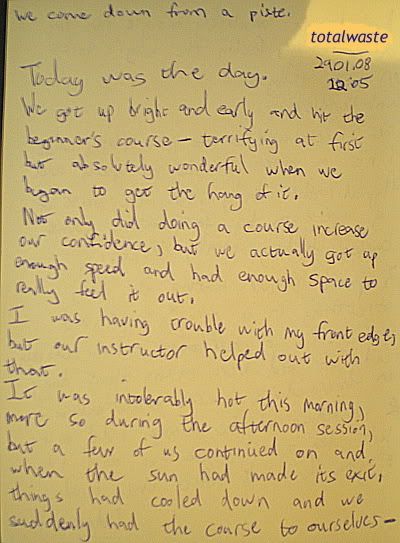 we come down from a piste.
totalwaste
29.01.08
12:05
Today was the day.
We got up bright and early and hit the
beginner's course – terrifying at first
but absolutely wonderful when we
began to get the hang of it.
Not only did doing a course increase
our confidence, but we actually got up
enough speed and had enough space to
really feel it out.
I was having trouble with my front edge,
but our instructor helped out with
that.
It was intolerably hot this morning,
more so during the afternoon session,
but a few of us continued on and,
when the sun had made its exit,
things had cooled down and we
suddenly had the course to ourselves –